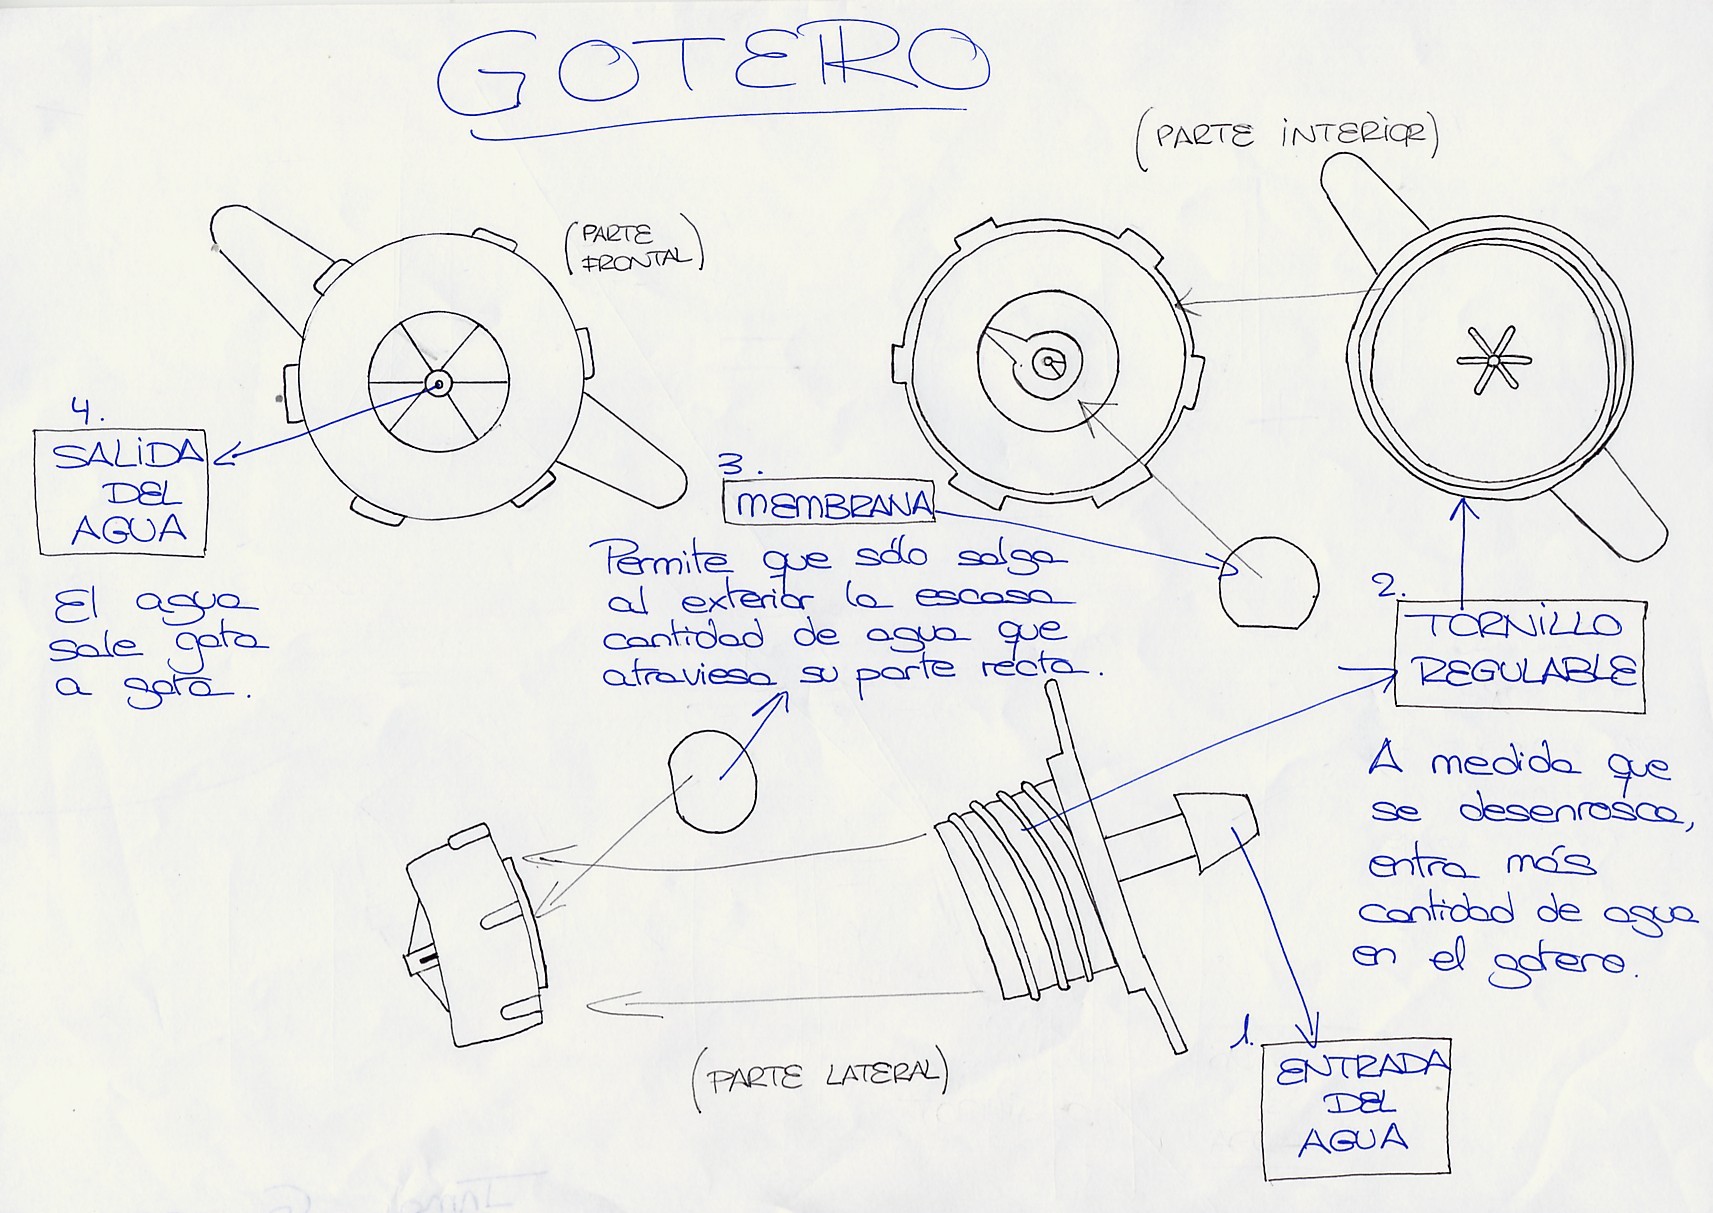 GOTERO
(PARTE INTERIOR)
(PARTE
FRONTAL)
4.
SALIDA
DEL
AGUA
El agua
sale gota
a gota.
3.
MEMBRANA
Permite que sólo salga
al exterior la escasa
cantidad de agua que
atraviesa su parte recta.
2.
TORNILLO
REGULABLE
A medida que
se desenrosca,
entra más
cantidad de agua
en el gotero.
1.
ENTRADA
DEL
AGUA
(PARTE LATERAL)